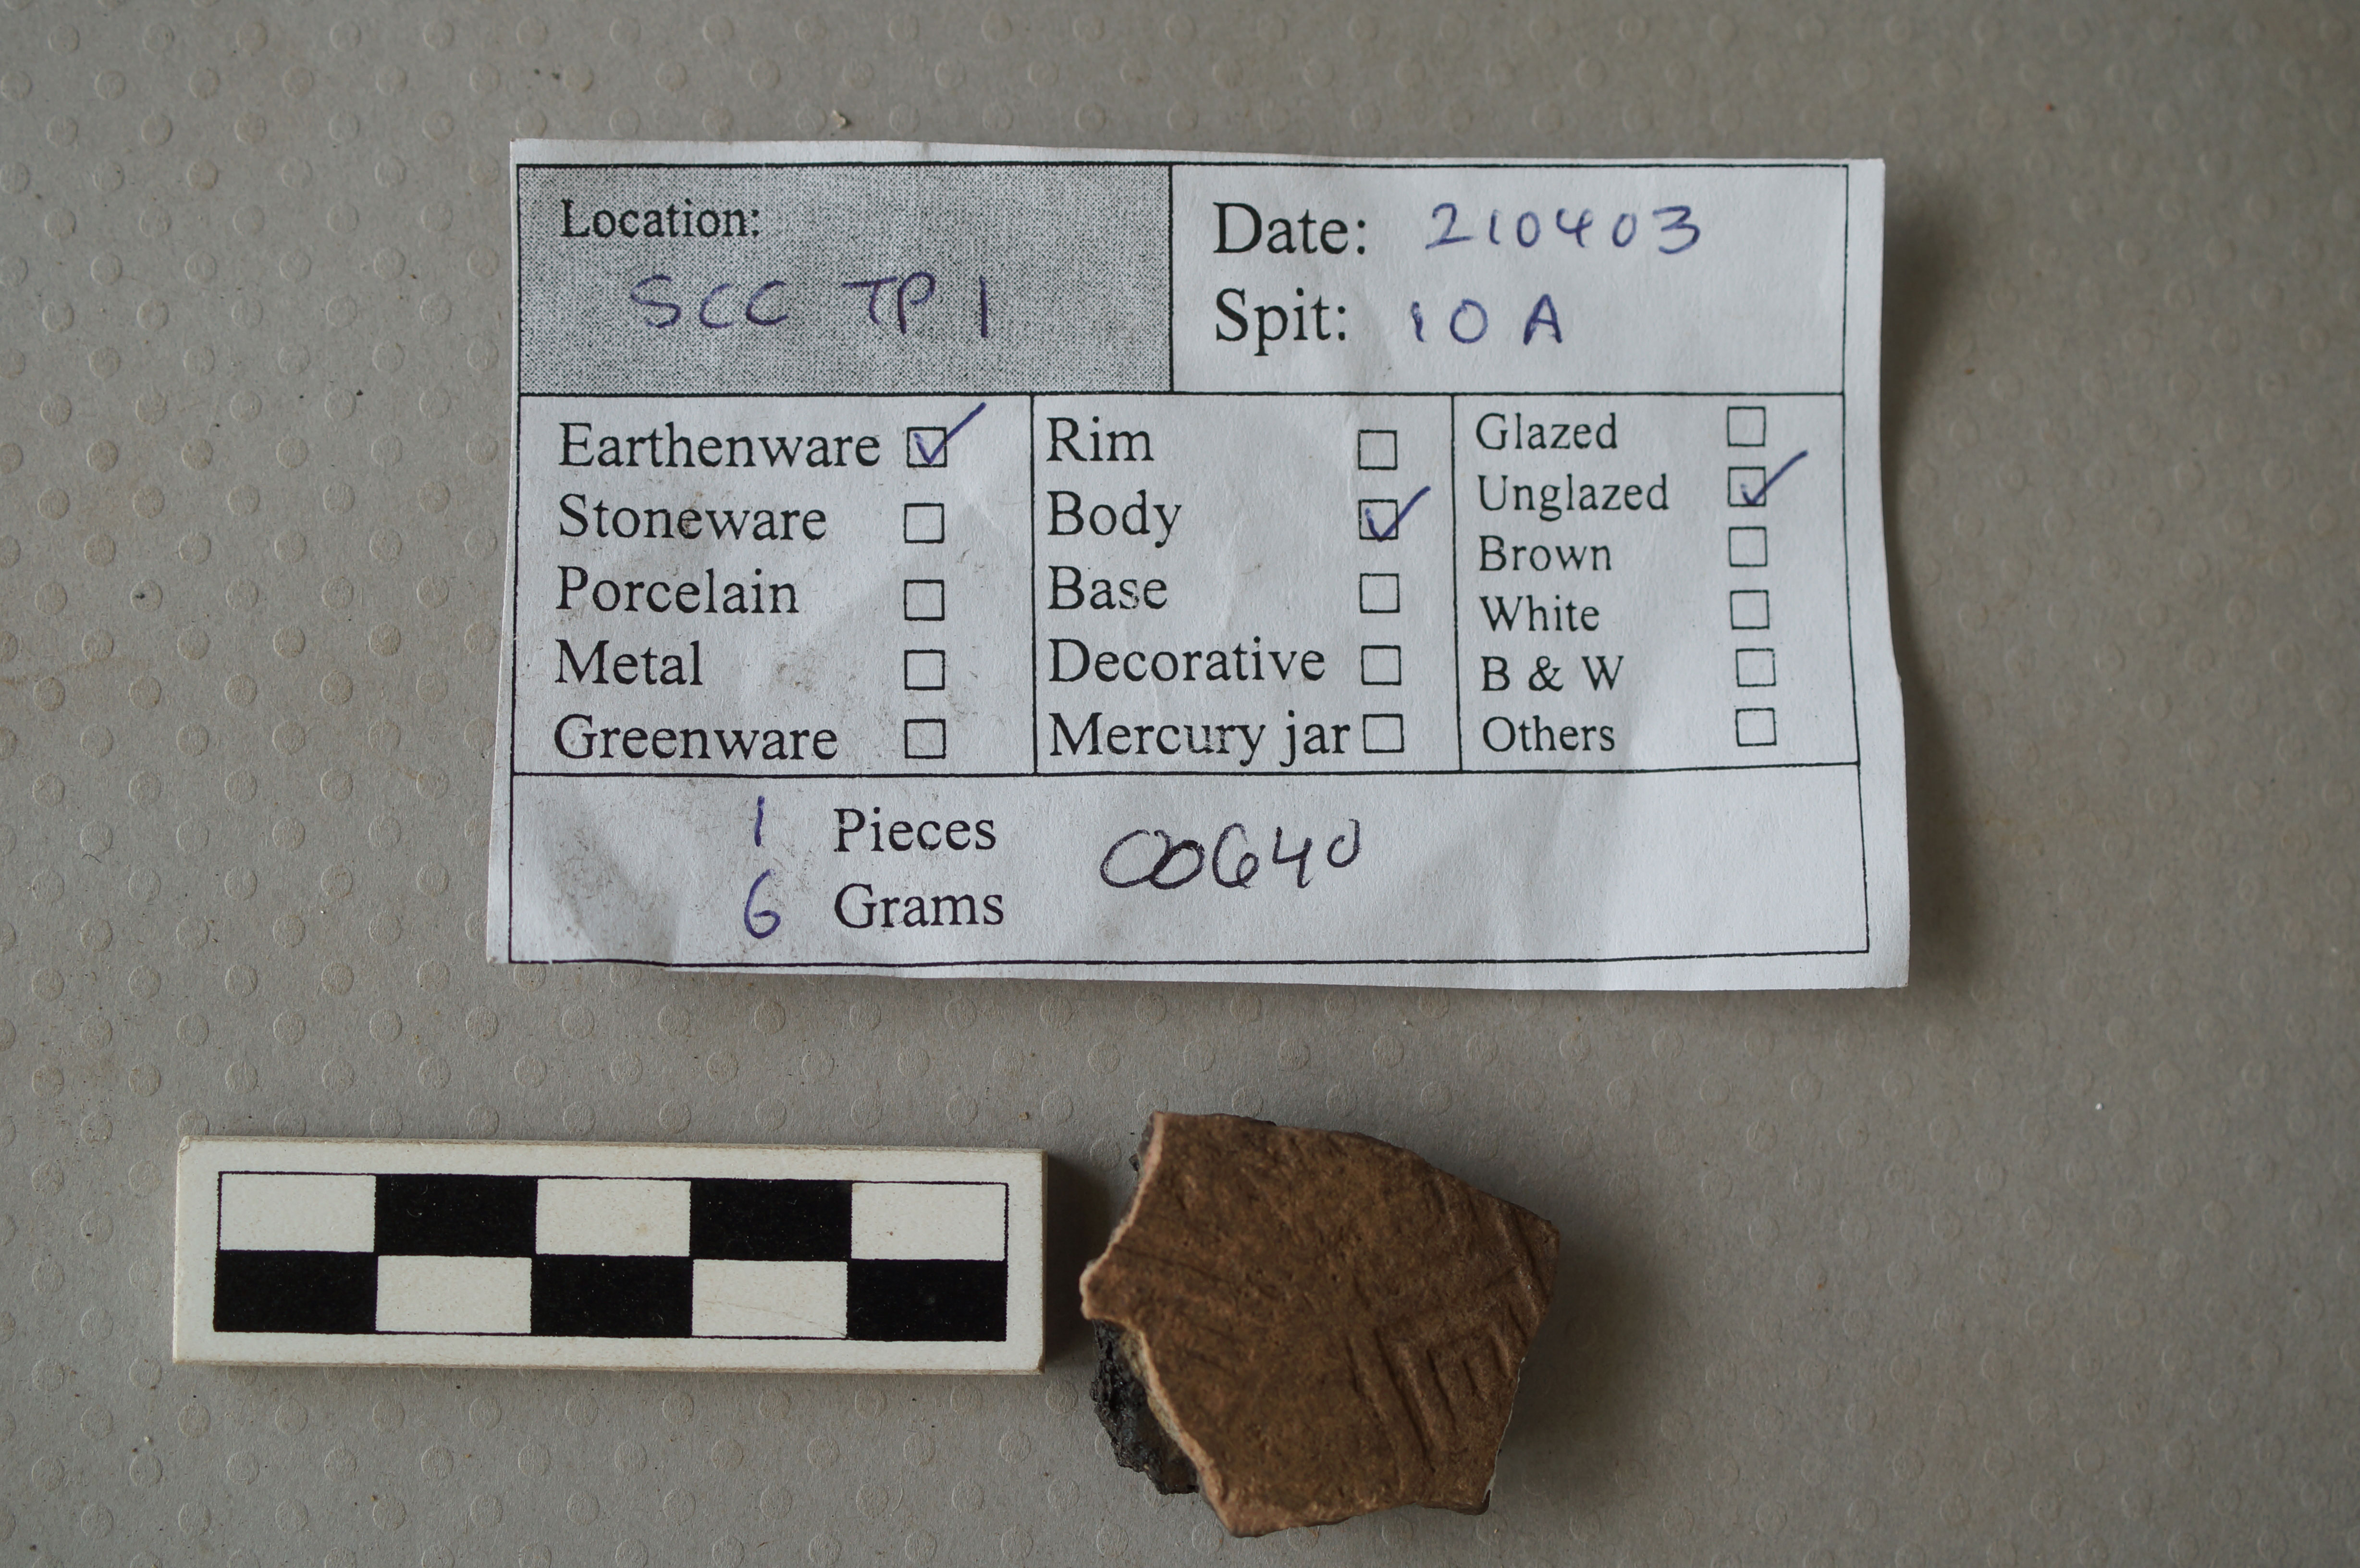 Location:
SCC TP 1
Date: 210403
Spit: 10 A
Earthenware ☑
Stoneware ☐
Porcelain ☐
Metal ☐
Greenware ☐
Rim ☐
Body ☑
Base ☐
Decorative ☐
Mercury jar ☐
Glazed ☐
Unglazed ☑
Brown ☐
White ☐
B & W ☐
Others ☐
1 Pieces
6 Grams
00640